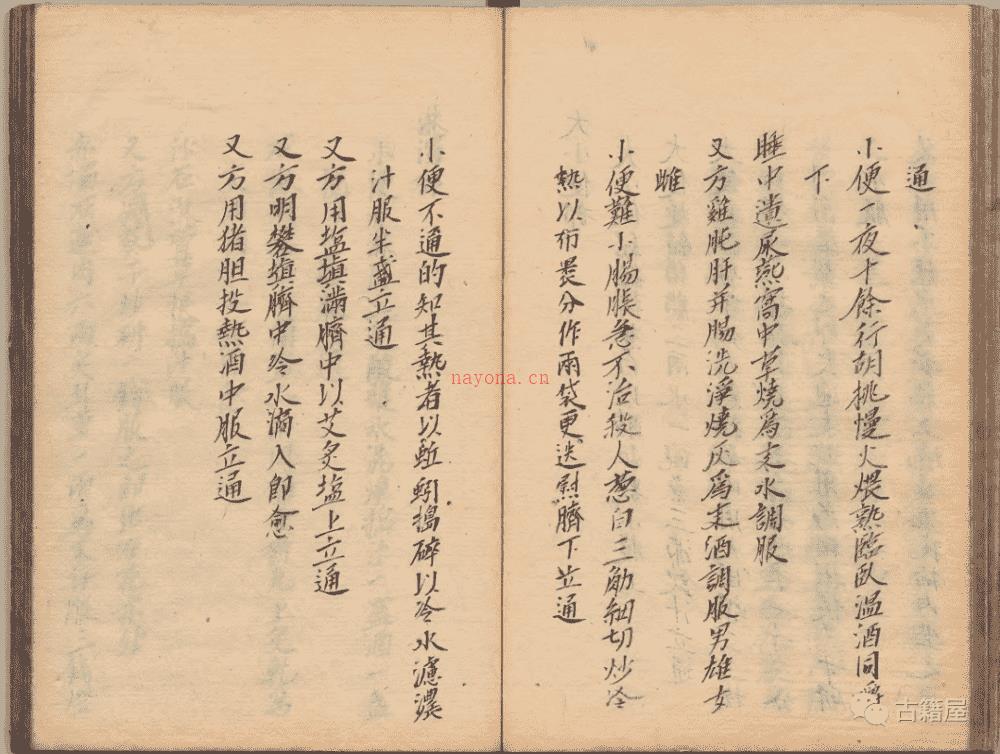 通
小便一夜十餘行胡桃慢火煨熟臨臥溫酒同嚼
下
睡中遺尿燕窩中草燒爲末水調服
又方雞肫肝并腸洗淨燒灰爲末酒調服男雄女
雌
小便難小腸脹急不治殺人葱白三觔細切炒令
熱以布裹分作兩袋更迭熨臍下立通
小便不通的知其熱者以蚯蚓搗碎以冷水濾濃
汁服半盞立通
又方用塩塡滿臍中以艾炙塩上立通
又方明礬塡臍中冷水滴入即愈
又方用猪胆投熱酒中服立通
nayona.cn
古籍屋